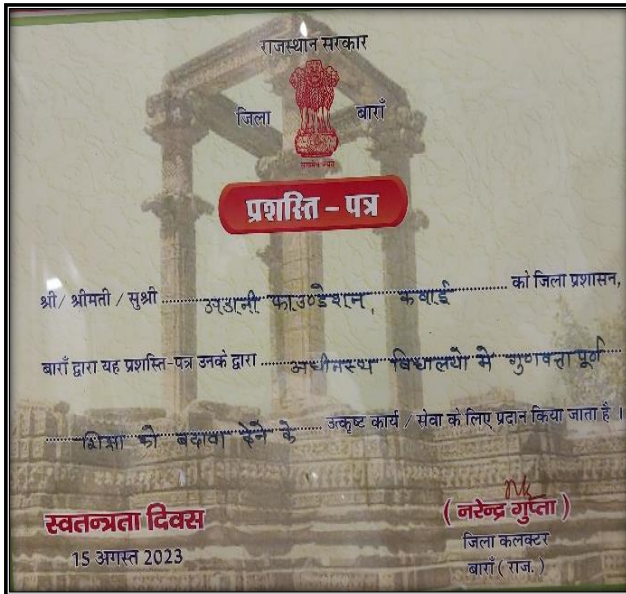 राजस्थान सरकार
जिला बाराँ
प्रशस्ति - पत्र
श्री/ श्रीमती / सुश्री ........ अडानी फाउण्डेशन, कवाई ........ को जिला प्रशासन,
बाराँ द्वारा यह प्रशस्ति-पत्र उनके द्वारा ........ अधीनस्थ विद्यालयों में गुणवत्ता पूर्ण
शिक्षा को बढावा देने के ........ उत्कृष्ट कार्य / सेवा के लिए प्रदान किया जाता है ।
स्वतन्त्रता दिवस
15 अगस्त 2023
( नरेन्द्र गुप्ता )
जिला कलक्टर
बाराँ ( राज. )